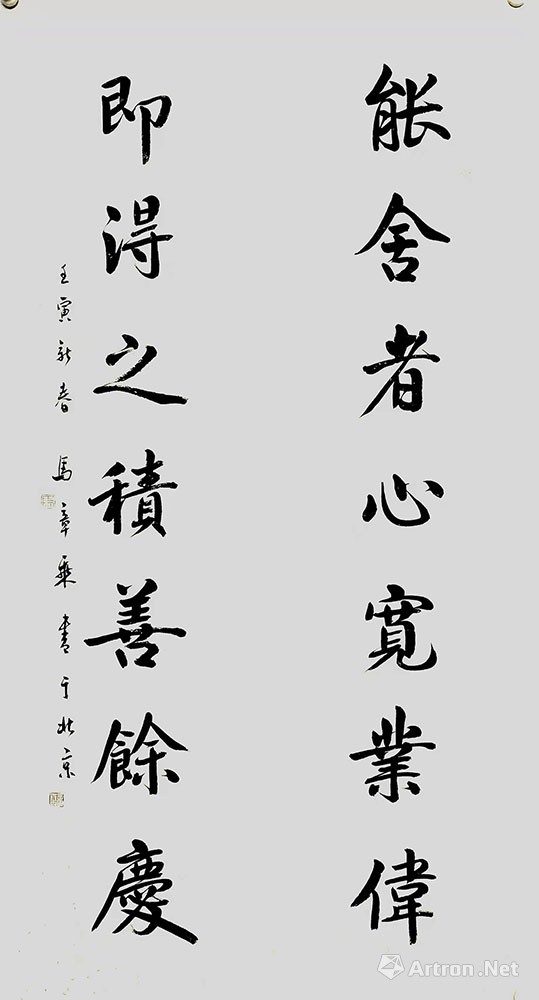 能舍者心寬業偉
即得之積善餘慶
壬寅新春 馬章乘書于北京
Artron.Net